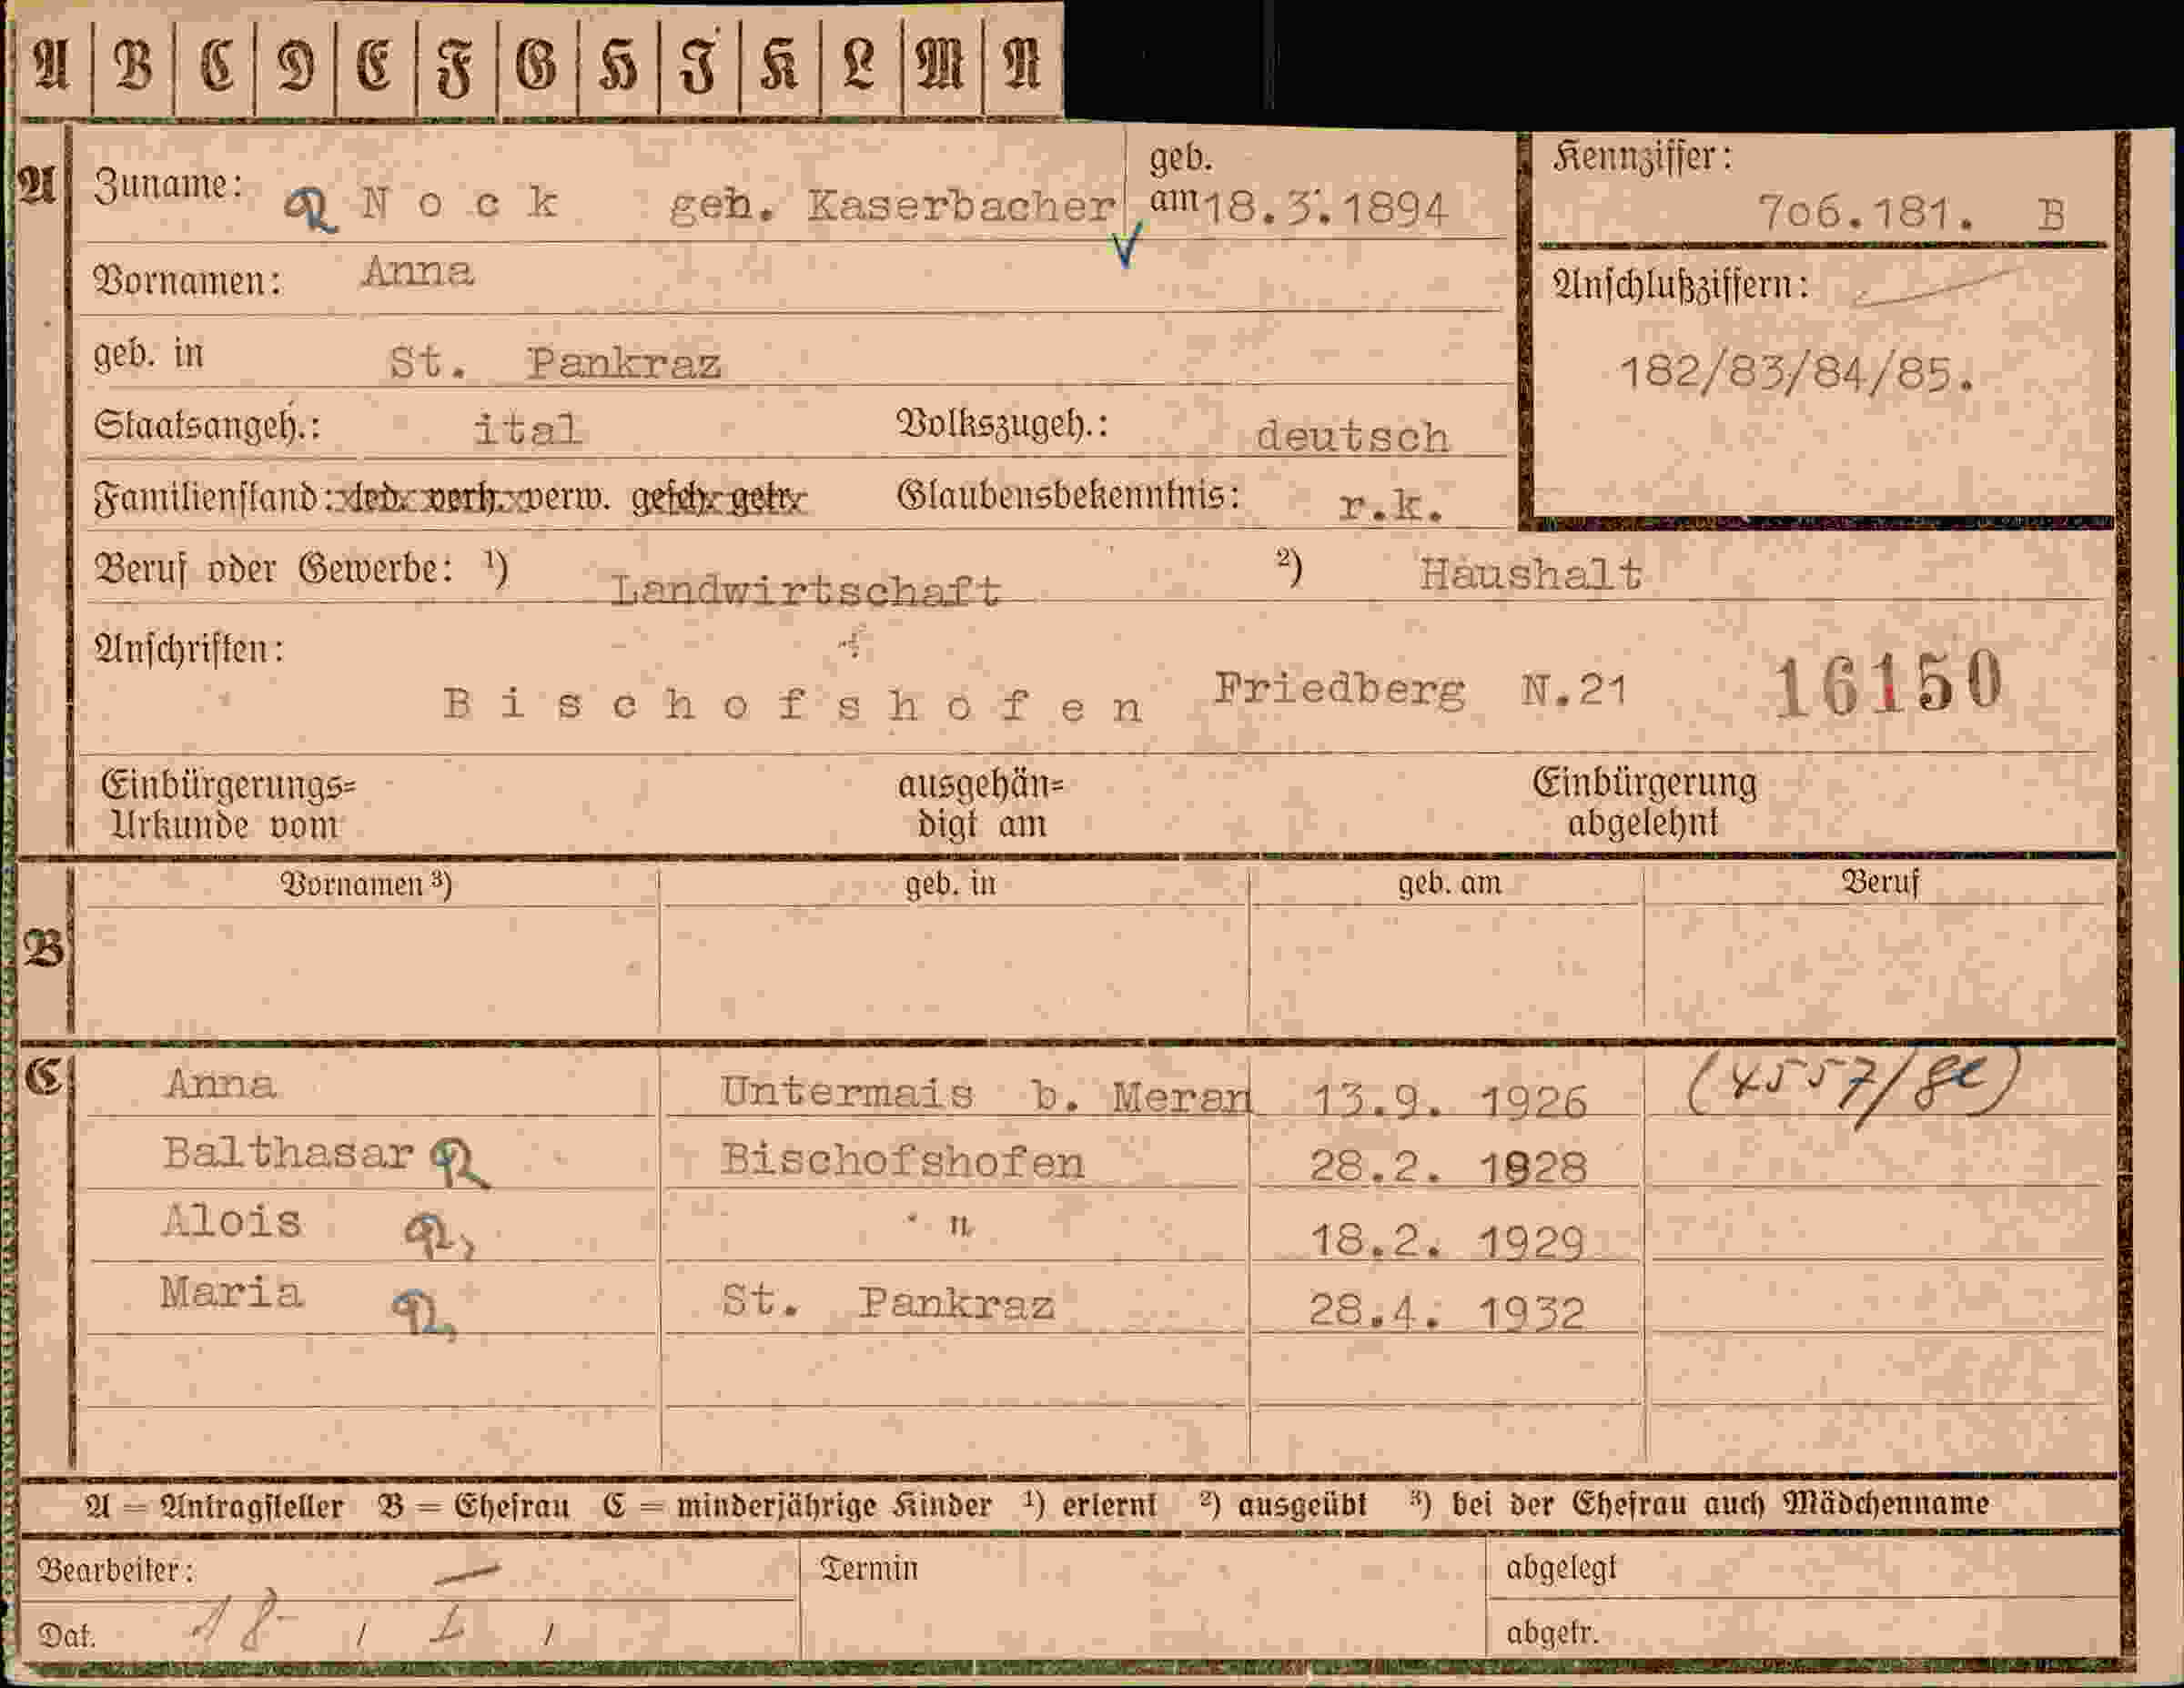 A B C D E F G H I K L M N
A Zuname: N o c k geb. Kaserbacher geb. am 18.3.1894 Kennziffer: 706.181. B
Vornamen: Anna Anschlußziffern:
geb. in St. Pankraz 182/83/84/85.
Staatsangeh.: ital Volkszugeh.: deutsch
Familienstand: led. verh. verw. gesch. getr. Glaubensbekenntnis: r.k.
Beruf oder Gewerbe: ¹) Landwirtschaft ²) Haushalt
Anschriften:
B i s c h o f s h o f e n Friedberg N.21 16150
Einbürgerungs= ausgehän= Einbürgerung
Urkunde vom digt am abgelehnt
Vornamen ³) geb. in geb. am Beruf
B
C Anna Untermais b. Meran 13.9. 1926
Balthasar Bischofshofen 28.2. 1928
Alois " 18.2. 1929
Maria St. Pankraz 28.4. 1932
A = Antragsteller B = Ehefrau C = minderjährige Kinder ¹) erlernt ²) ausgeübt ³) bei der Ehefrau auch Mädchenname
Bearbeiter: Termin abgelegt
Dat. abgetr.